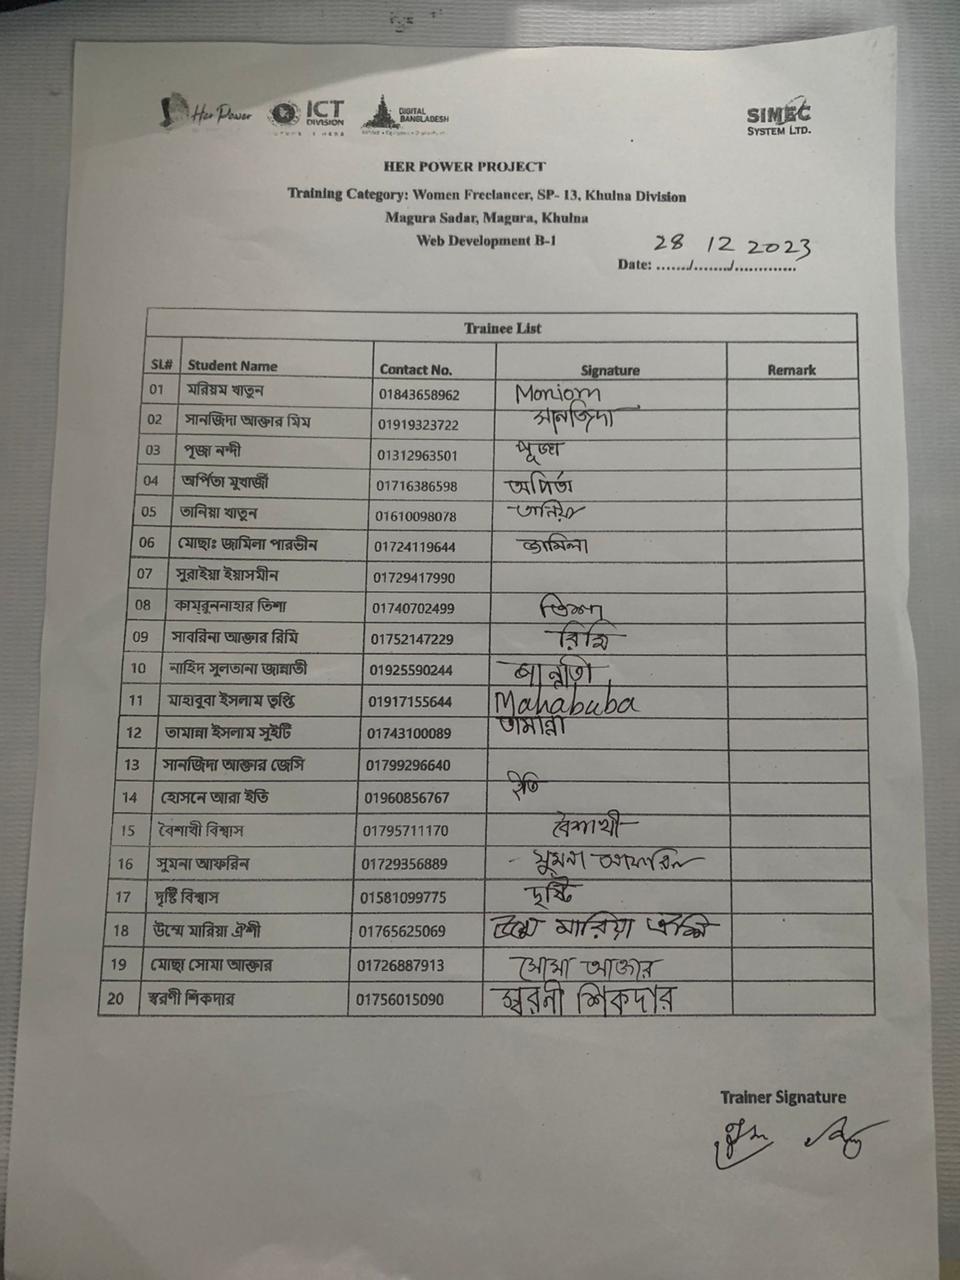 Her Power
ICT
DIVISION
DIGITAL
BANGLADESH
SIMEC
SYSTEM LTD.
HER POWER PROJECT
Training Category: Women Freelancer, SP- 13, Khulna Division
Magura Sadar, Magura, Khulna
Web Development B-1
28 12 2023
Date: ......./......../.............
Trainee List
SL# Student Name Contact No. Signature Remark
01 মরিয়ম খাতুন 01843658962 Moniom
02 সানজিদা আক্তার মিম 01919323722 সানজিদা
03 পূজা নন্দী 01312963501 পূজা
04 অর্পিতা মুখার্জী 01716386598 অর্পিতা
05 তানিয়া খাতুন 01610098078 তানিয়া
06 মোছাঃ জামিলা পারভীন 01724119644 জামিলা
07 সুরাইয়া ইয়াসমীন 01729417990
08 কামরুননাহার তিশা 01740702499 তিশা
09 সাবরিনা আক্তার রিমি 01752147229 রিমি
10 নাহিদ সুলতানা জান্নাতী 01925590244 জান্নাতী
11 মাহাবুবা ইসলাম তৃপ্তি 01917155644 Mahabuba
12 তামান্না ইসলাম সুইটি 01743100089 তামান্না
13 সানজিদা আক্তার জেসি 01799296640
14 হোসনে আরা ইতি 01960856767 ইতি
15 বৈশাখী বিশ্বাস 01795711170 বৈশাখী
16 সুমনা আফরিন 01729356889 সুমনা আফরিন
17 দৃষ্টি বিশ্বাস 01581099775 দৃষ্টি
18 উম্মে মারিয়া ঐশী 01765625069 উম্মে মারিয়া ঐশি
19 মোছা সোমা আক্তার 01726887913 সোমা আক্তার
20 স্বরণী শিকদার 01756015090 স্বরনী শিকদার
Trainer Signature